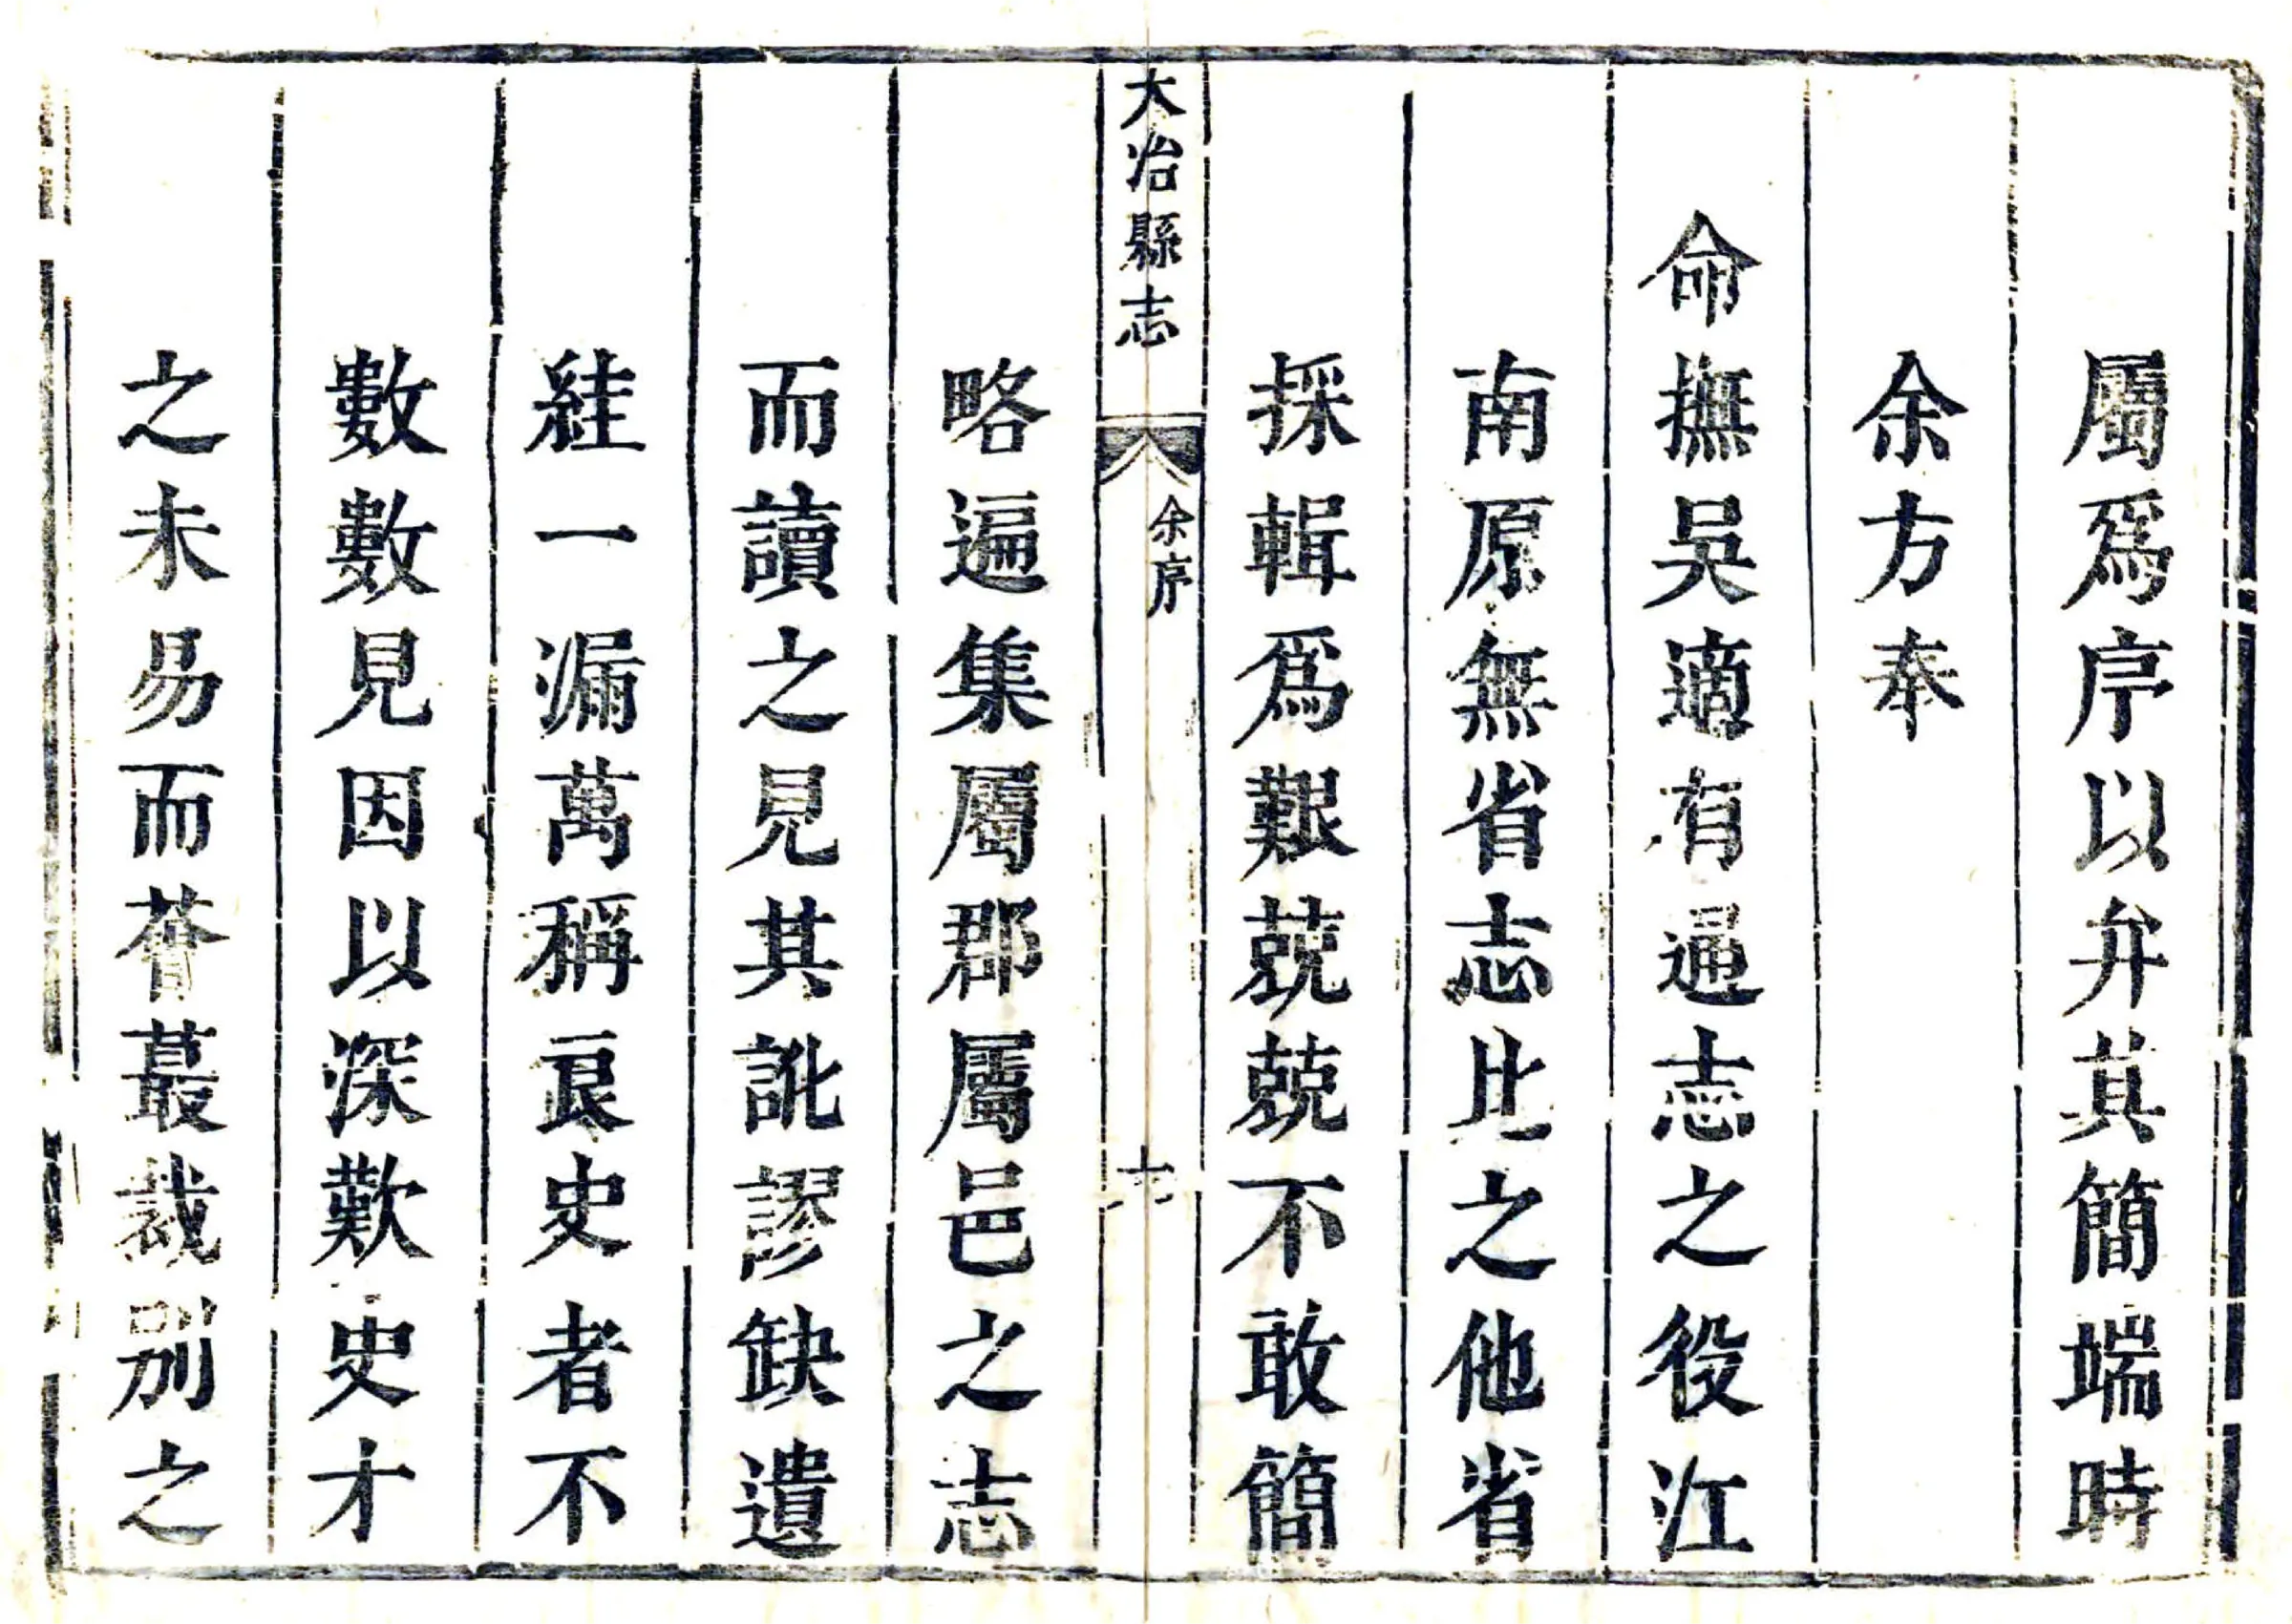 屬爲序以弁其簡端時
余方奉
命撫吳適有通志之役江
南原無省志比之他省
採輯爲艱兢兢不敢簡
大冶縣志
余序
略遍集屬郡屬邑之志
而讀之見其訛謬缺遺
絓一漏萬稱良史者不
數數見因以深歎史才
之未易而薈蕞裁別之